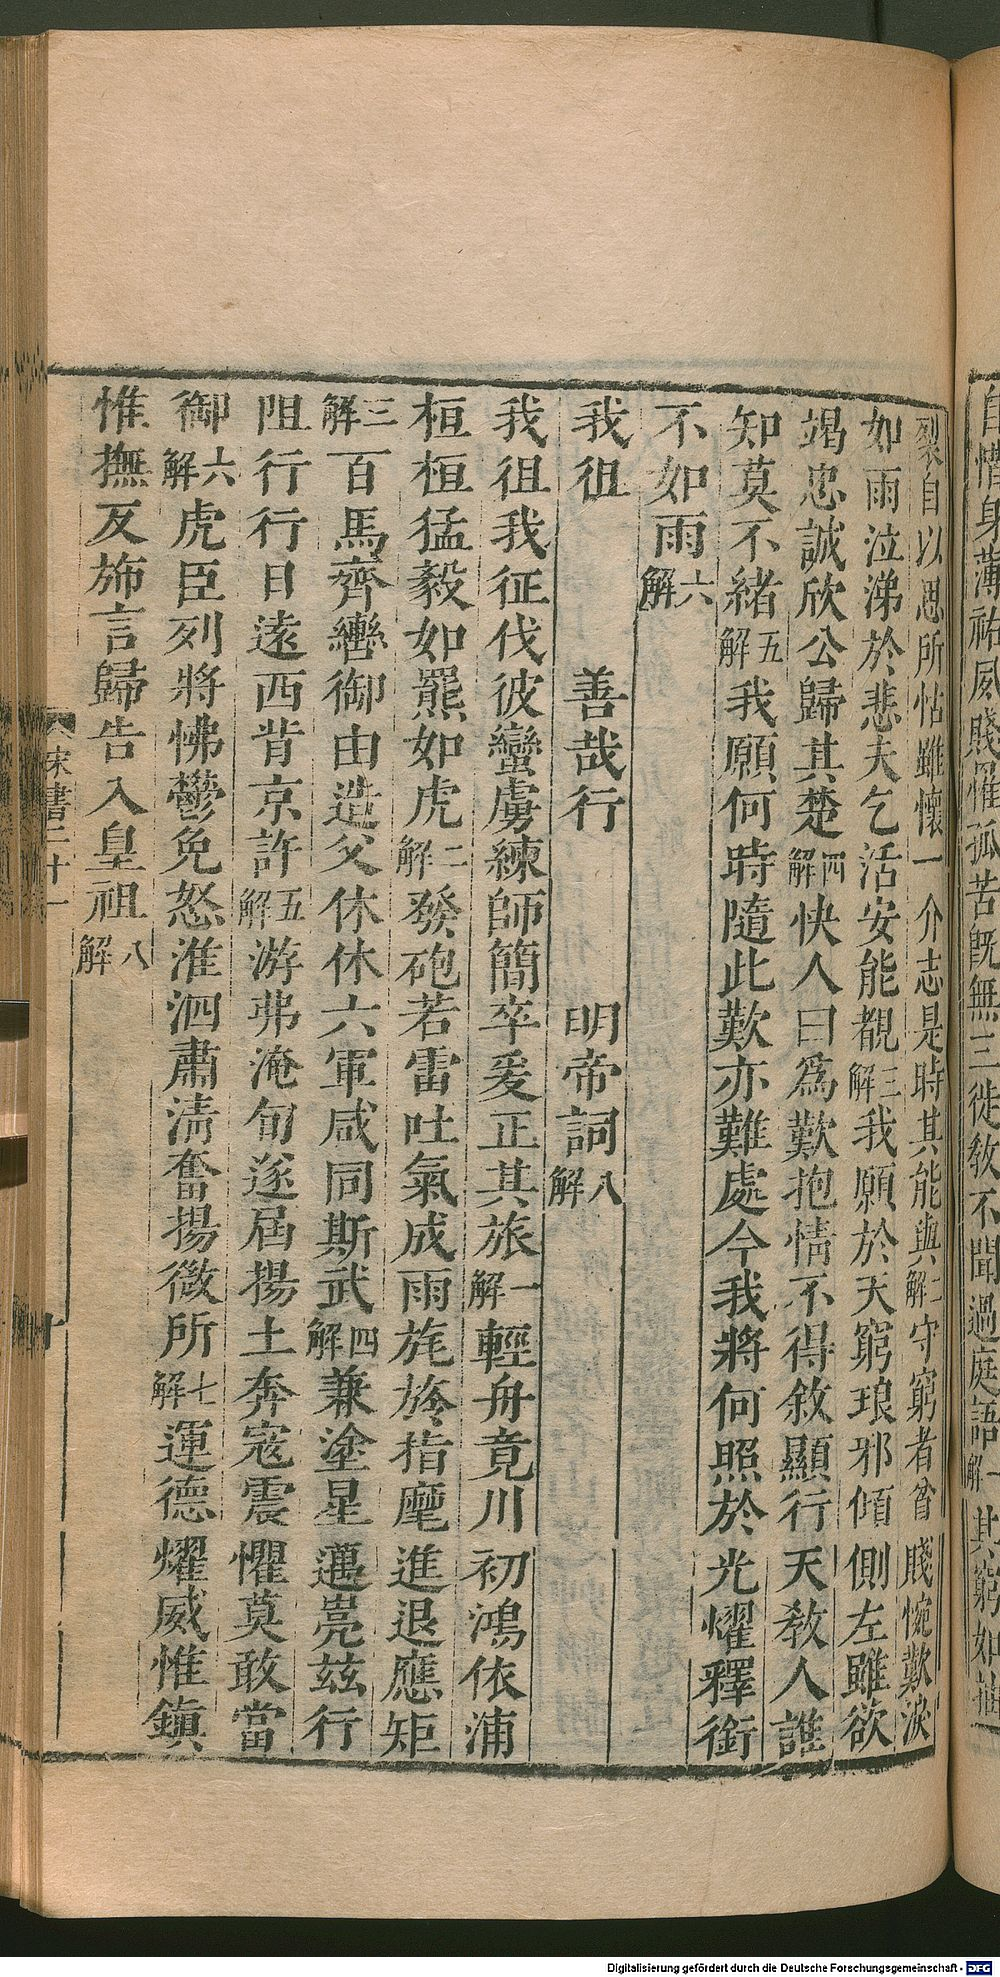 自惜身薄祜夙賤罹孤苦旣無三徙敎不聞過庭語一解其窮如抽
裂自以思所怙雖懷一介志是時其能與二解守窮者貧賤惋歎淚
如雨泣涕於悲夫乞活安能覩三解我願於天窮琅邪傾側左雖欲
竭忠誠欣公歸其楚四解快人曰爲歎抱情不得敘顯行天敎人誰
知莫不緒五解我願何時隨此歎亦難處今我將何照於光耀釋銜
不如雨六解
我徂 善哉行 明帝詞八解
我徂我征伐彼蠻虜練師簡卒爰正其旅一解輕舟竟川初鴻依浦
桓桓猛毅如羆如虎二解發砲若雷吐氣成雨旄旍指麾進退應矩
三解百馬齊轡御由造父休休六軍咸同斯武四解兼塗星邁亮兹行
阻行行日遠西背京許五解游弗淹旬遂屆揚土奔寇震懼莫敢當
御六解虎臣列將怫鬱充怒淮泗肅淸奮揚微所七解運德耀威惟鎭
惟撫反旆言歸告入皇祖八解
宋書二十一
十
Digitalisierung gefördert durch die Deutsche Forschungsgemeinschaft - DFG